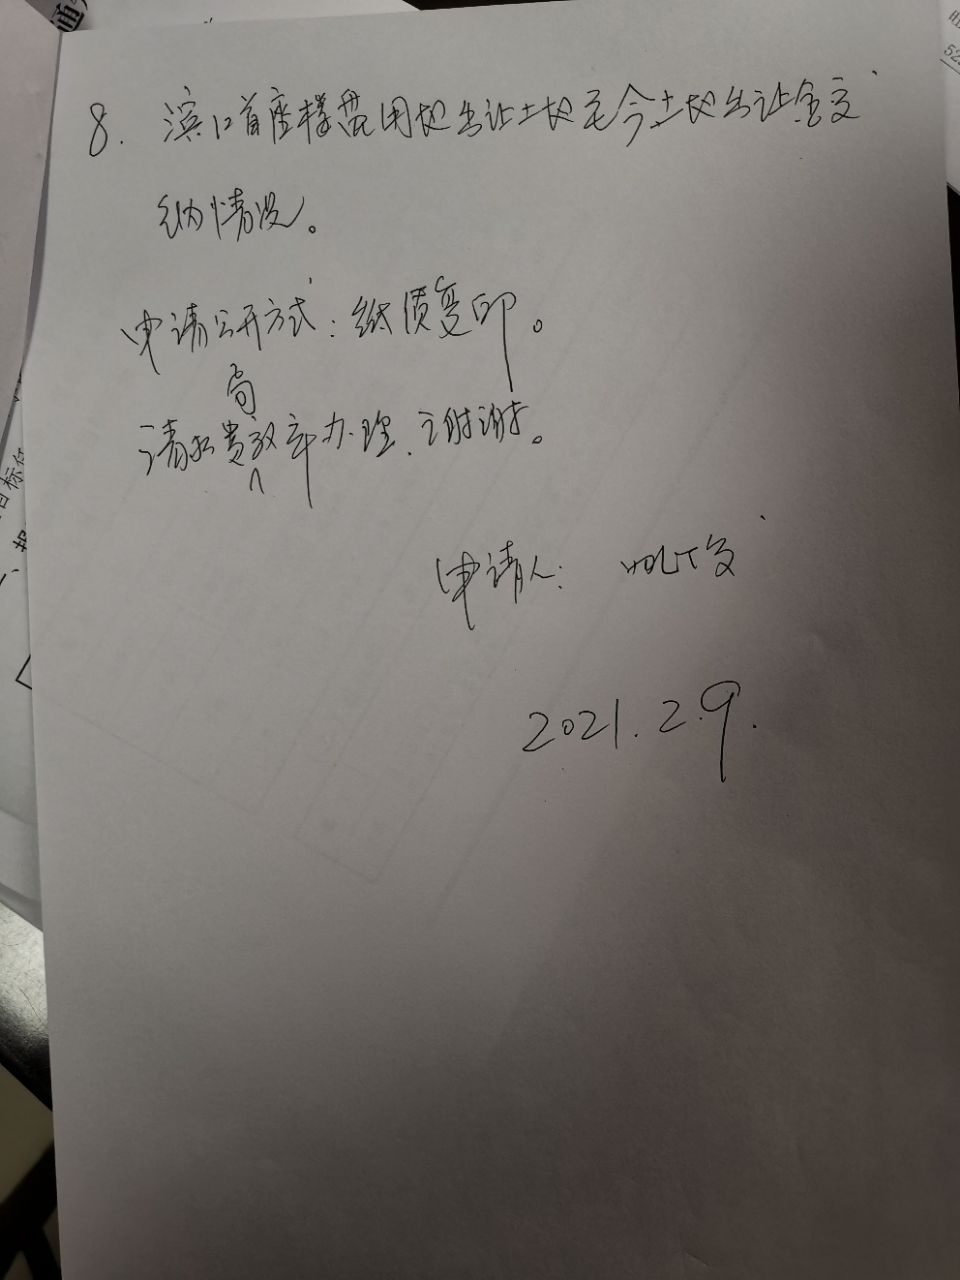 8. 滨江首座楼盘用地出让土地至今土地出让金交
纳情况。
申请公开方式：纸质复印。
请求贵局放弃办理、谢谢。
申请人：
2021.2.9.